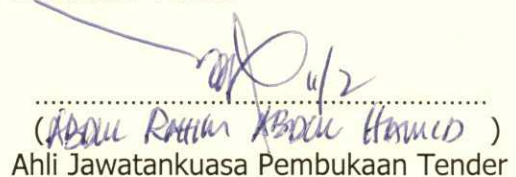 11/2
(ABDUL RAHIM ABDUL HAMID )
Ahli Jawatankuasa Pembukaan Tender